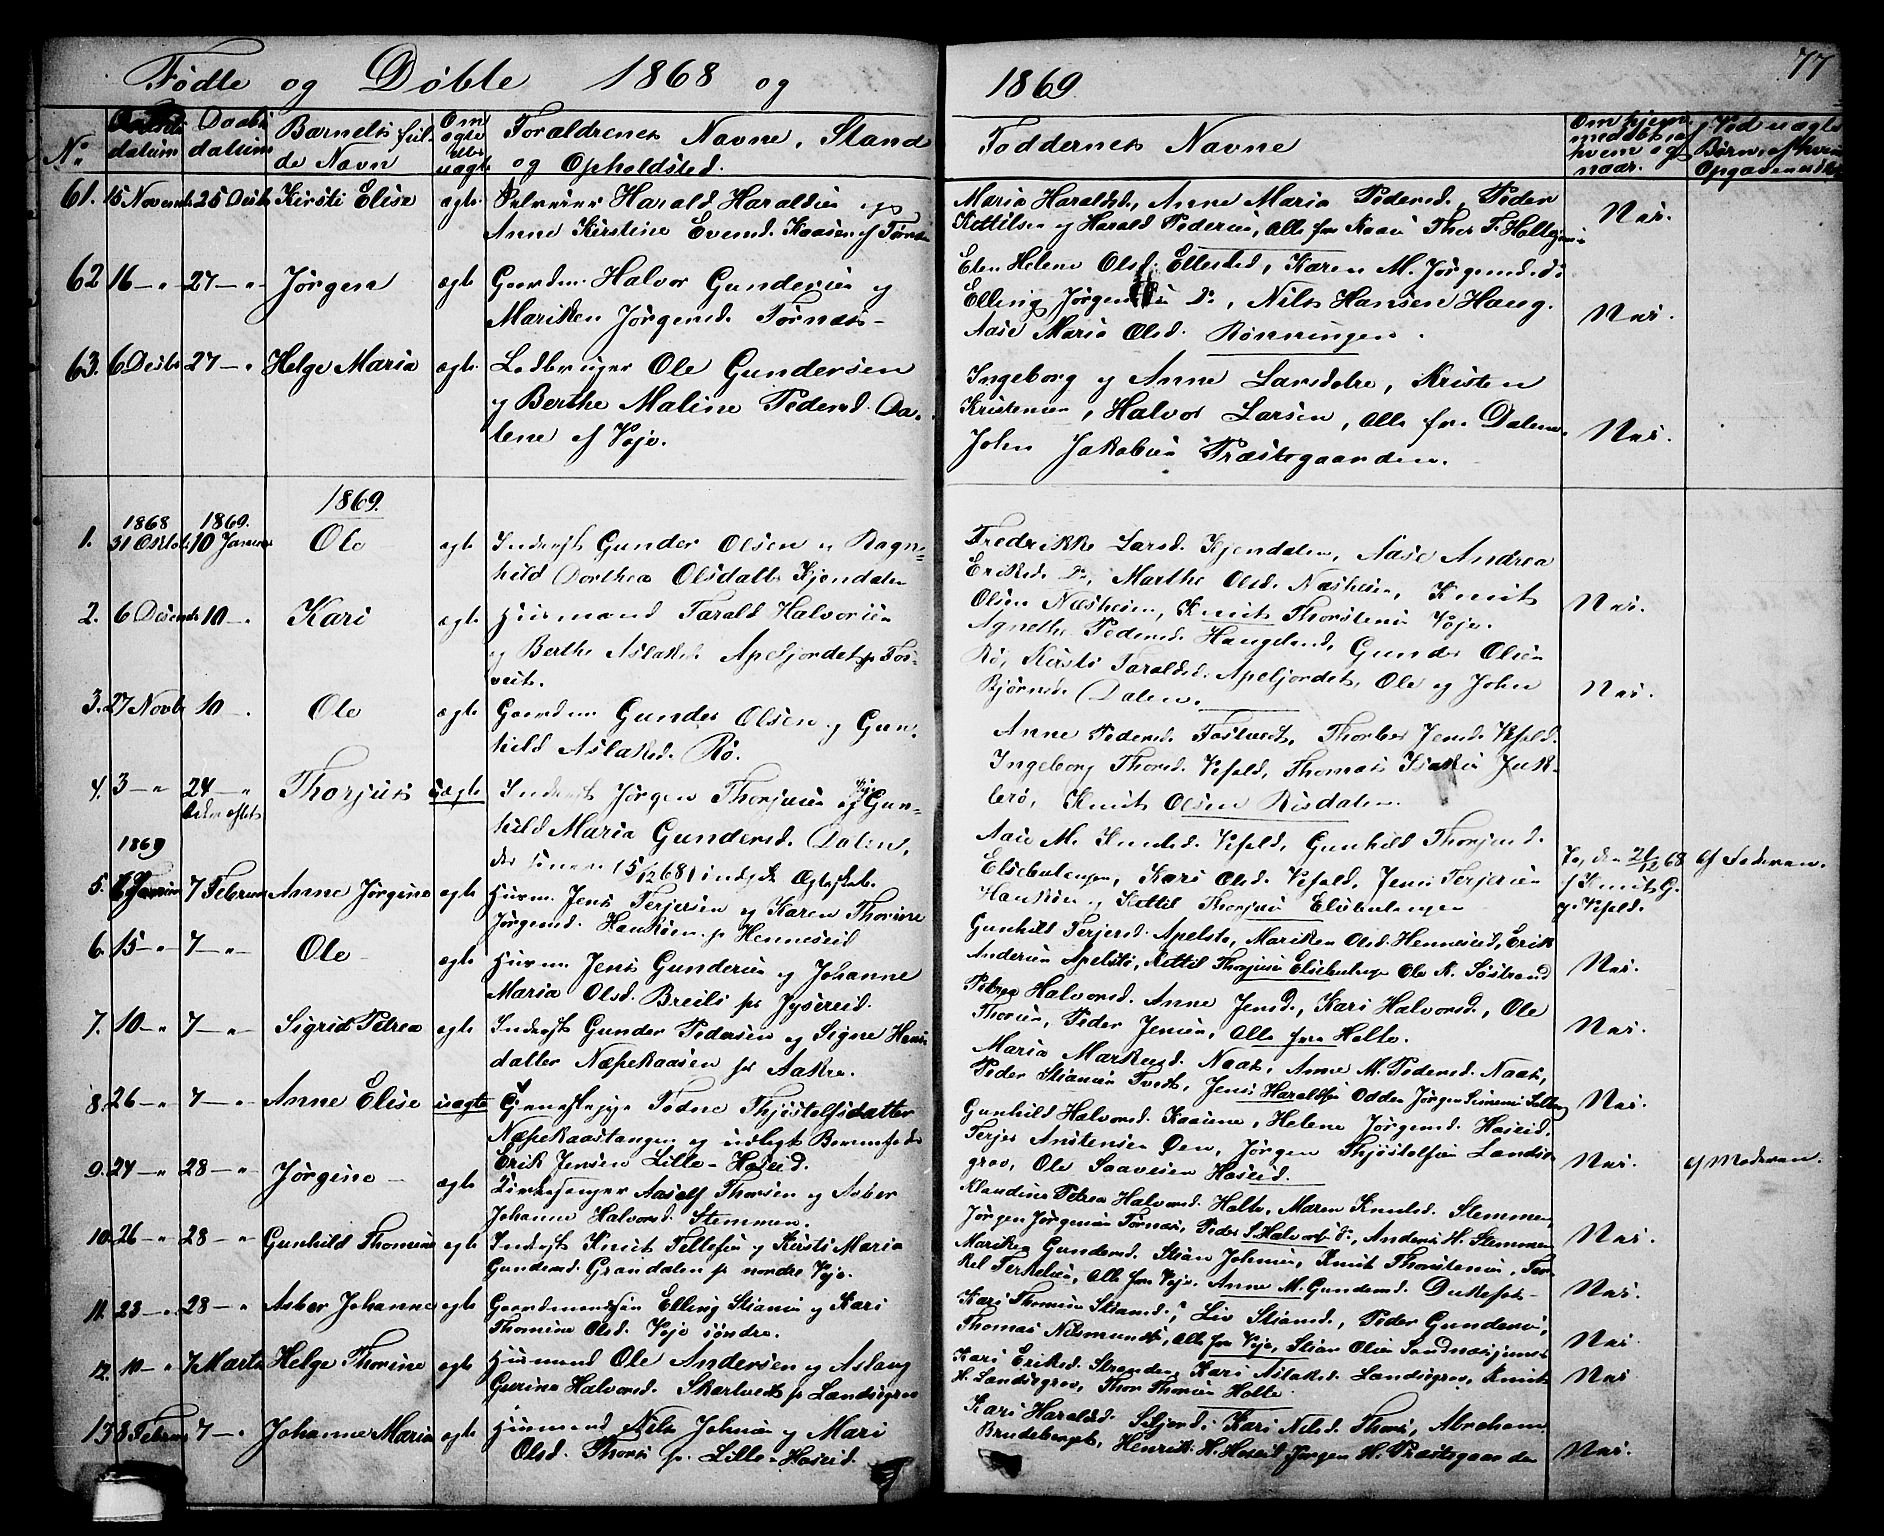 Fødte og Døbte 1868 og
1869
77
No
datum
Daabs datum
Barnets fulde Navn
Om ægte eller uægte
Forældrenes Navne, Stand og Opholdsted.
Faddernes Navne
Om hjemmedøbt, af hvem og naar.
Ved uægte Børn, af hvem
61. 15 Novemb 25 Desb Kirsti Elise ægte Selveier Harald Haraldsen og
Anne Kirstine Evensd. Kaasen af Tørnes
Maria Haraldsd., Anne Maria Pedersd., Peder
Kittilsen og Harald Pedersen, Alle fra Kaasa
Nei.
62 16 — " 27 — " Jørgen ægte Gaardm. Halvor Gundersen og
Mariken Jørgensd. Tørnæs -
Elen Helene Olsd. Ellestad, Karen M. Jørgensd. do
Elling Jørgensen Do, Nils Hansen Haug.
Aase Maria Olsd. Rønningen.
Nei.
63. 6 Desbr 27 — " Helge Maria ægte. Ledbruger Ole Gundersen
og Berthe Maline Pedersd. Da-
lene af Veje.
Ingeborg og Anne Larsdøtre, Kristen
Kristensen, Halvor Larsen, Alle fra Dalene
John Jakobsen Præstegaarden.
Nei.
1869.
1868 1869.
1. 31 Oktob. 10 Januar Ole ægte Inderst Gunder Olsen og Ragn-
hild Dorthea Olsdatter Kjendalen
Fredrikke Larsd. Kjendalen, Aase Andrea
Eriksd. Do, Marthe Olsd. Næsheim, Knut
Olsen Næsheim, Knut Thorstensen Veje.
Nei.
2. 6 Desemb 10 — " Kari ægte Husmand Tarald Halvorsen
og Berthe Aslaksd. Apeljordet p. Fos-
veit.
Agnethe Pedersd. Haugland, Gunder Olsen
Rø, Kirsti Taraldsd. Apeljordet, Ole og John
Bjørnsd. Dalen.
Nei.
3. 27 Novb 10 — Ole ægte Gaardm. Gunder Olsen og Gun-
hild Aslaksd. Rø.
Anne Pedersd. Fostvedt, Thorber Jensd. Vefald.
Ingeborg Thorsd. Vefald, Thomas Isaksen Juk-
lerø, Knut Olsen Risdalen.
4. 3 — " 24 — " Thorjus uægte Inderst Jørgen Thorjusen og Gun-
hild Maria Gundersd. Dalen,
der senere 15/12 68 indgik Ægteskab.
Aase M. Knudsd. Vefald, Gunhild Thorjusd.
Elsebutangen, Kari Olsd. Vefald, Jens Terjesen
Haukøen, Kittil Thorjusen Elsebutangen
Ja, den 21/12 68
af Knut G.
Vefald.
Af Faderen.
1869
5. 7 Februar Anne Jørgine ægte Husm. Jens Terjesen og Karen Thorine
Jørgensd. Haukøen p Henneseid
Gunhild Terjesd. Apelstø, Mariken Olsd. Henneseid, Erik
Andersen Apelstø, Kittil Thorjusen Elsebutangen Ole K. Søstrand
Nei.
6. 15 — " 7 — " Ole ægte Husm. Jens Gundersen og Johanne
Maria Olsd. Breili p. Jysereid.
Petrea Halvorsd. Anne Jensd., Kari Halvorsd., Ole
Thorsen, Peder Jensen, Alle fra Holte.
7. 10 — " 7 — " Sigrid Petrea ægte Inderst Gunder Pedersen og Signe Hans-
datter Næpekaasen p. Aakre.
Maria Markusd. Naas, Anne M. Pedersd. Naas,
Peder Stiansen Tvedt, Jens Haraldsen Odden Jørgen Simensen
Nei.
8. 26 — " 7 — " Anne Elise uægte Todne Thjøstelfsdatter
Næpekaastangen og udlagt Barnefader
Erik Jensen Lille-Haseid.
Gunhild Halvorsd. Kaasene, Helene Jørgensd. Haseid,
Terjer Anstensen Øen, Jørgen Thjøstelfsen Landsø-
grav, Ole Saavesen Haseid.
Nei. af Moderen.
9. 24 — " 28 — " Jørgine — ægte Kirkesanger Aasulf Thorsen og Asber
Johanne Halvorsd. Stemmen.
Klaudine Petrea Halvorsd. Holte, Maren Knutsd. Stemmen,
Jørgen Jørgensen Tørnæs, Peder S. Halvorsen do, Anders H. Stemmen
Nei.
10. 26 — " 28 — " Gunhild Thomine ægte Inderst Knut Tellefsen og Kirsti Maria
Gundersd. Grandalen p. nordre Veje.
Mariken Gundersd. Stian Johnsen, Knut Thorstensen, Ter-
kel Terkelsen, Alle fra Veje, Anne M. Gundersd.
Nei.
11. 23 — " 28 — " Asber Johanne ægte Gaardmandssøn Elling Stiansen og Kari
Thomine Olsd. Veje søndre.
Kari Thomine Stiansd., Liv Stiansd., Peder Gunders.,
Thomas Nilsmundsen, Alle fra Veje, Stian Olsen
Nei
12. 10 — " 7 Marts Helge Thorine ægte Husmand Ole Andersen og Aslaug
Gurine Halvorsd. Skartvedt p. Landsøgrav
Kari Eriksd. Stranden, Kari Aslaksd. Landsøgrav, Knut
H. Landsøgrav, Thor Thorsen Holte.
Nei
13. 8 Februar 7 — " Johanne Maria ægte Husmand Nils Johnsen og Mari
Olsd. Thorsø p. Lille-Haseid.
Kari Haraldsd. Siljord, Kari Nilsd. Thorsø, Abraham
Brudeberget, Henrik H. Haseid Jørgen H. Præstegaarden
Nei.